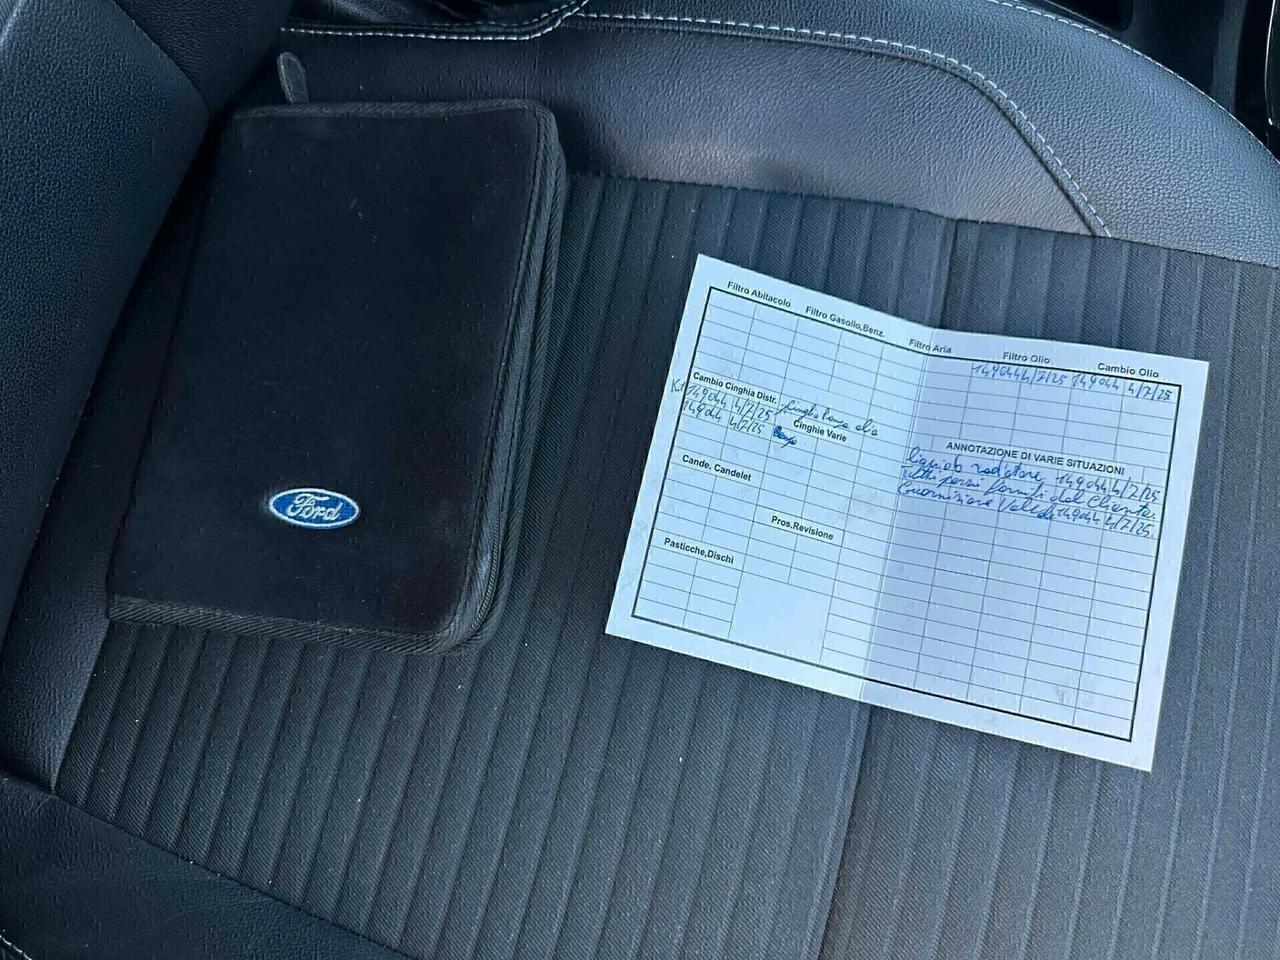 Ford
Filtro Abitacolo
Filtro Gasolio,Benz.
Filtro Aria
Filtro Olio
Cambio Olio
149044 4/7/25 149044 4/7/25
Cambio Cinghia Distr.
149044 4/7/25
149044 4/7/25
Cinghie Varie
Cande, Candelet
Pros,Revisione
Pasticche,Dischi
ANNOTAZIONE DI VARIE SITUAZIONI
radiatore 149044 4/7/25
pezzi forniti dal Cliente
Guarnizione 149044 4/7/25.